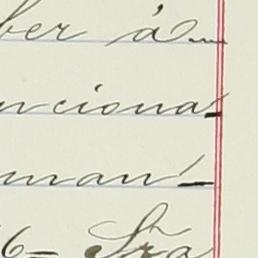 ber á
nciona-
man-
6- Sra